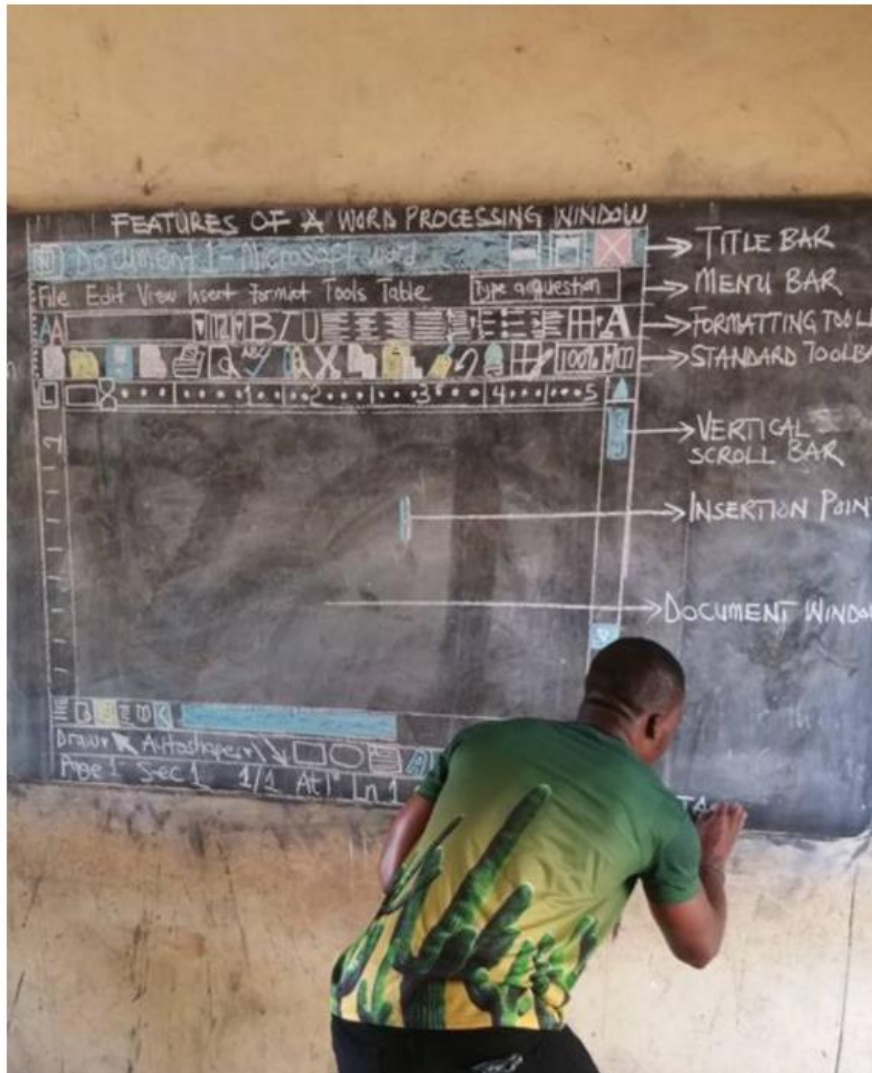 FEATURES OF A WORD PROCESSING WINDOW
Document 1 - Microsoft word
TITLE BAR
File Edit View Insert Format Tools Table
Type a question
MENU BAR
AA 12 B I U A
FORMATTING TOOL
ABC 100%
STANDARD TOOLBA
L 1 2 3 4 5
1
VERTICAL
SCROLL BAR
INSERTION POINT
DOCUMENT WINDOW
Draw Autoshapes A
Page 1 Sec 1 1/1 At 1" Ln 1
TA